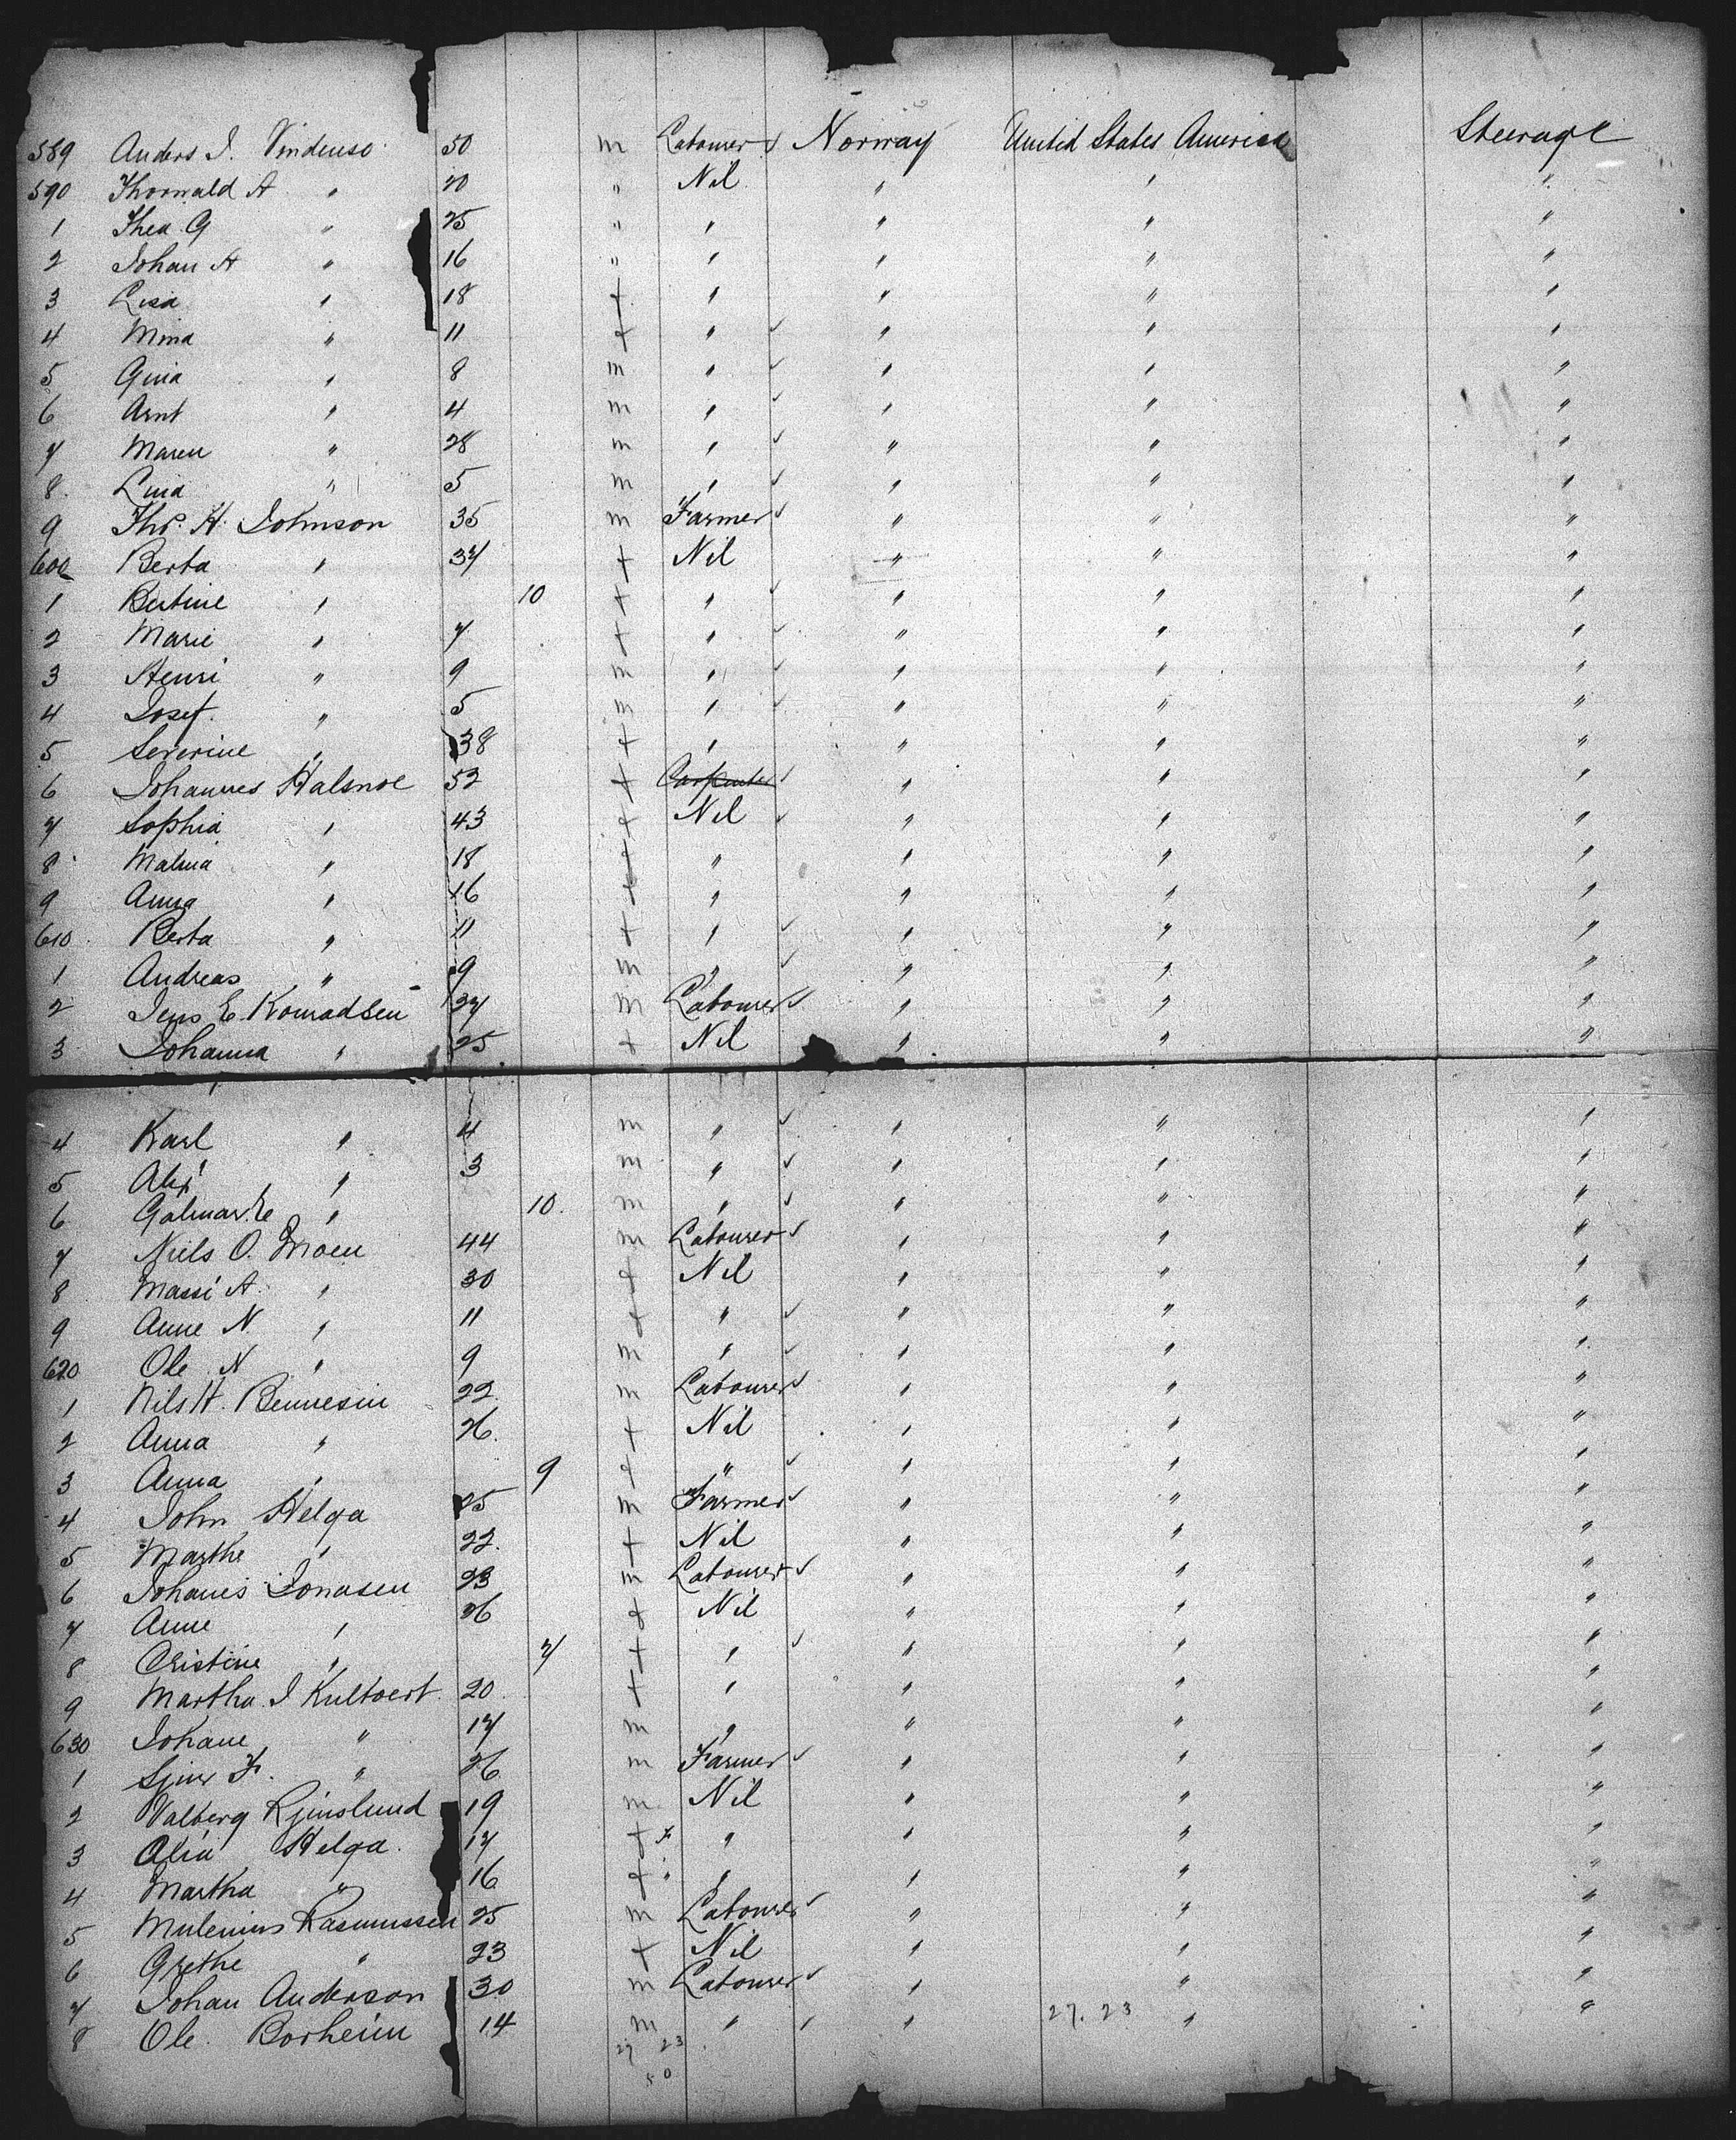 589 Anders J. Vindenso 50 m Labourer Norway United States America Steerage
590 Thorwald A " 20 " Nil " " "
1 Thea G " 25 " " " " "
2 Johan A " 16 " " " " "
3 Lisa " 18 f " " " "
4 Mina " 11 f " " " "
5 Gina " 8 m " " " "
6 Arnt " 4 m " " " "
7 Maren " 28 m " " " "
8. Lina " 5 m " " " "
9 Tho. H. Johnson 35 m Farmer " " "
600 Berta " 37 f Nil " " "
1 Bertine " 10 f " " " "
2 Marie " 7 f " " " "
3 Henri " 9 m " " " "
4 Josef. " 5 m " " " "
5 Severine " 38 f " " " "
6 Johannes Halsnoe 52 f Carpenter " " "
7 Sophia " 43 f Nil " " "
8 Malina " 18 f " " " "
9 Anna " 16 f " " " "
610 Berta " 11 f " " " "
1 Andreas " 9 m " " " "
2 Jens E. Konradsen 37 m Labourer " " "
3 Johanna " 25 f Nil " " "
4 Karl " 4 m " " " "
5 Alex " 3 m " " " "
6 " 10. m " " " "
7 Niels O. Moen 44 m Labourer " " "
8 Massi A. " 30 f Nil " " "
9 Anne N. " 11 f " " " "
620 Ole N " 9 m " " " "
1 Nils H. 22 m Labourer " " "
2 Anna " 26. f Nil " " "
3 Anna " 9 f " " " "
4 John Helga 25 m Farmer " " "
5 Marthe " 22. f Nil " " "
6 Johanes Jonasen 23 m Labourer " " "
7 Anne " 26 f Nil " " "
8 Cristine " 7 f " " " "
9 Martha. J 20 f " " " "
630 Johane " 17 m " " " "
1 " 26 m Farmer " " "
2 Valberg 19 m Nil " " "
3 Helga. 17 f F " " " "
4 Martha " 16 f " " " " "
5 Rasmussen 25 m Labourer " " "
6 Grethe " 23 f Nil " " "
7 Johan Anderson 30 m Labourer " " "
8 Ole. Borheim 14 m " " 27. 23 " "
27 23
50